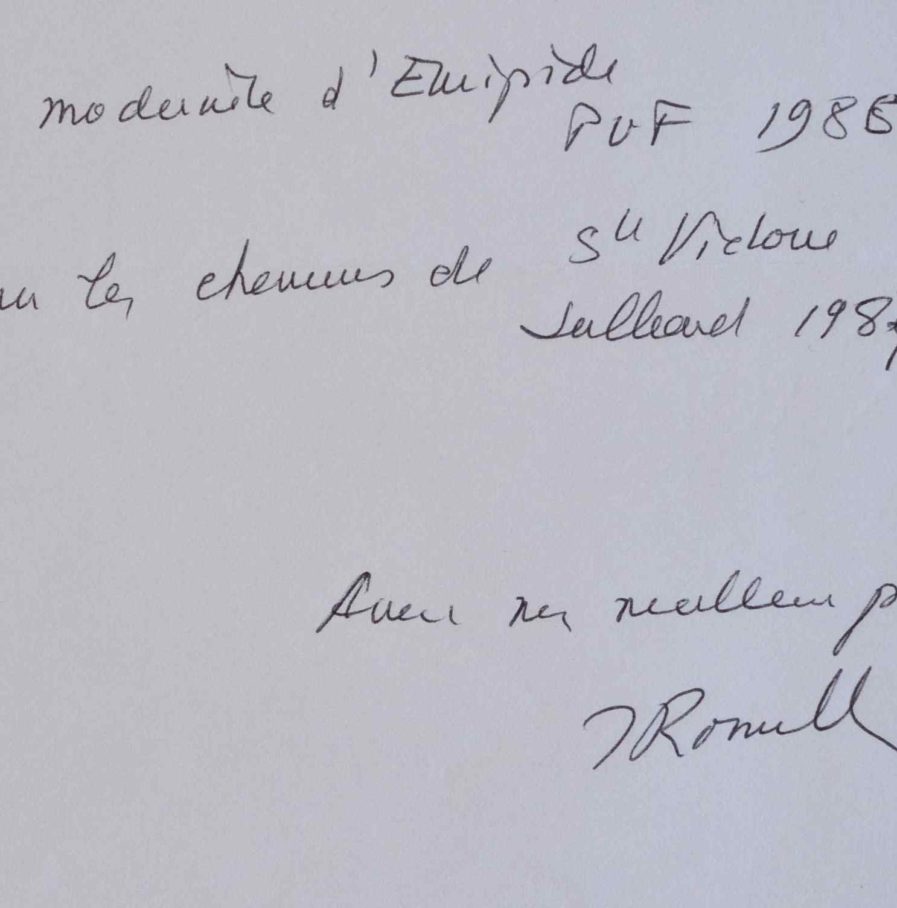 modernité d'Euripide
PUF 1986
les chemins de Ste Victoire
Julliard 198
Avec mes meilleurs
JRomilly